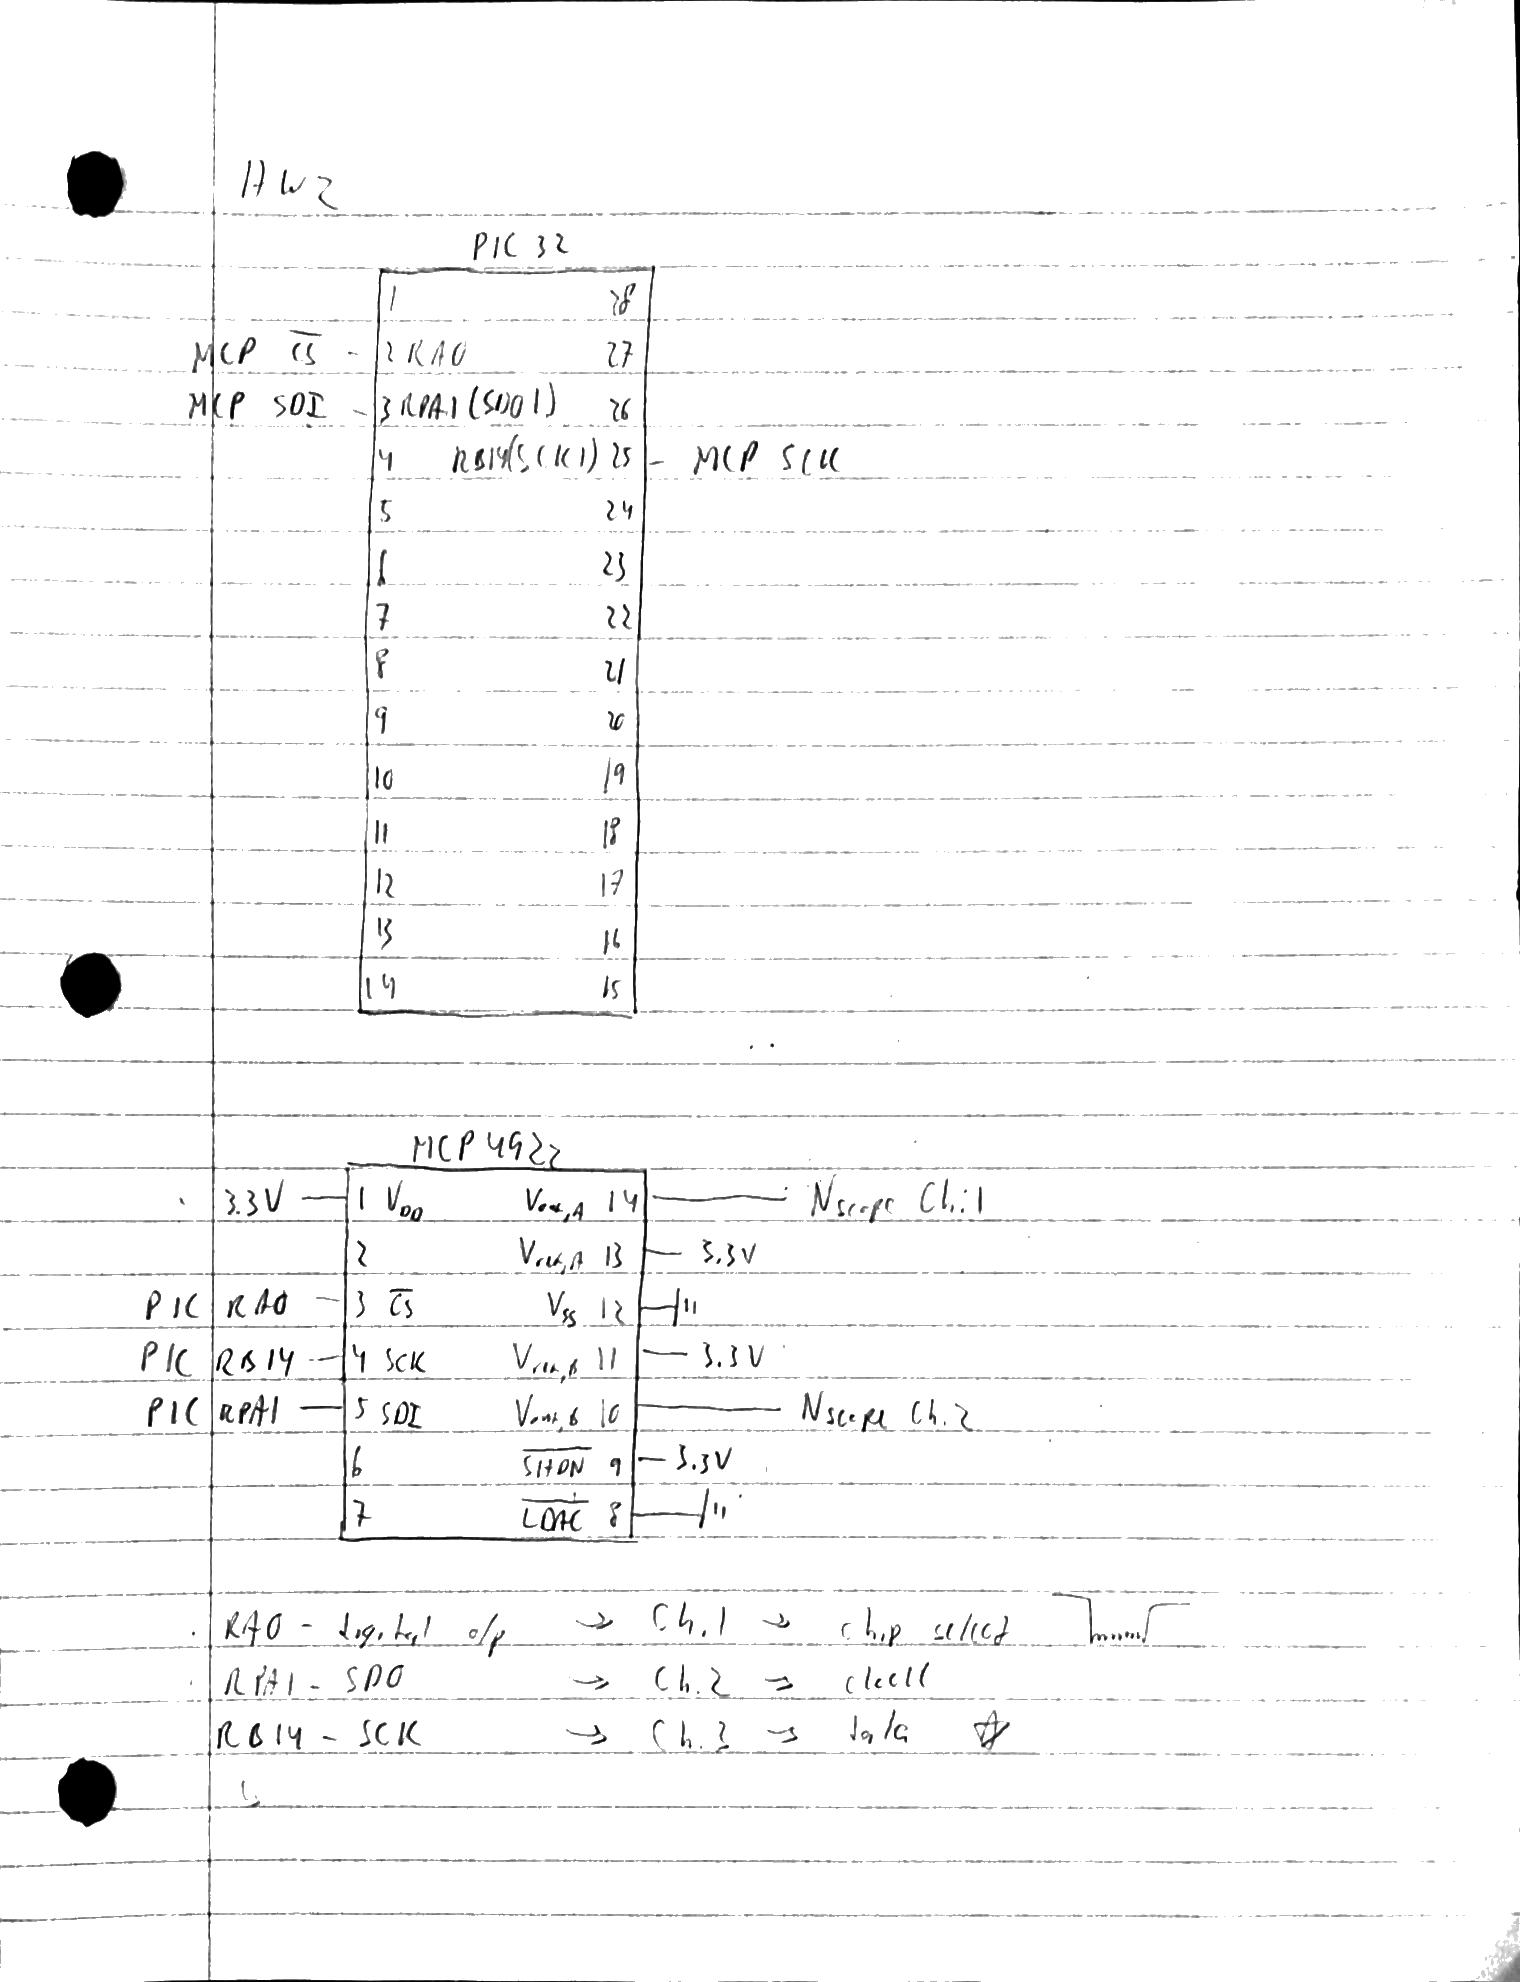 HW2
PIC 32
1 28
MCP C̅S̅ - 2 RA0 27
MCP SDI - 3 RPA1(SDO1) 26
4 RB14(SCK1) 25 - MCP SCK
5 24
6 23
7 22
8 21
9 20
10 19
11 18
12 17
13 16
14 15
MCP 4922
3.3V 1 VDD Vout,A 14 Nscope Ch.1
2 Vref,A 13 3.3V
PIC RA0 - 3 C̅S̅ Vss 12
PIC RB14 - 4 SCK Vref,B 11 3.3V
PIC RPA1 5 SDI Vout,B 10 Nscope Ch.2
6 S̅H̅D̅N̅ 9 3.3V
7 L̅D̅A̅C̅ 8
RA0 - digital o/p → Ch.1 → chip select
RPA1 - SDO → Ch.2 → clock
RB14 - SCK → Ch.3 → data ☆